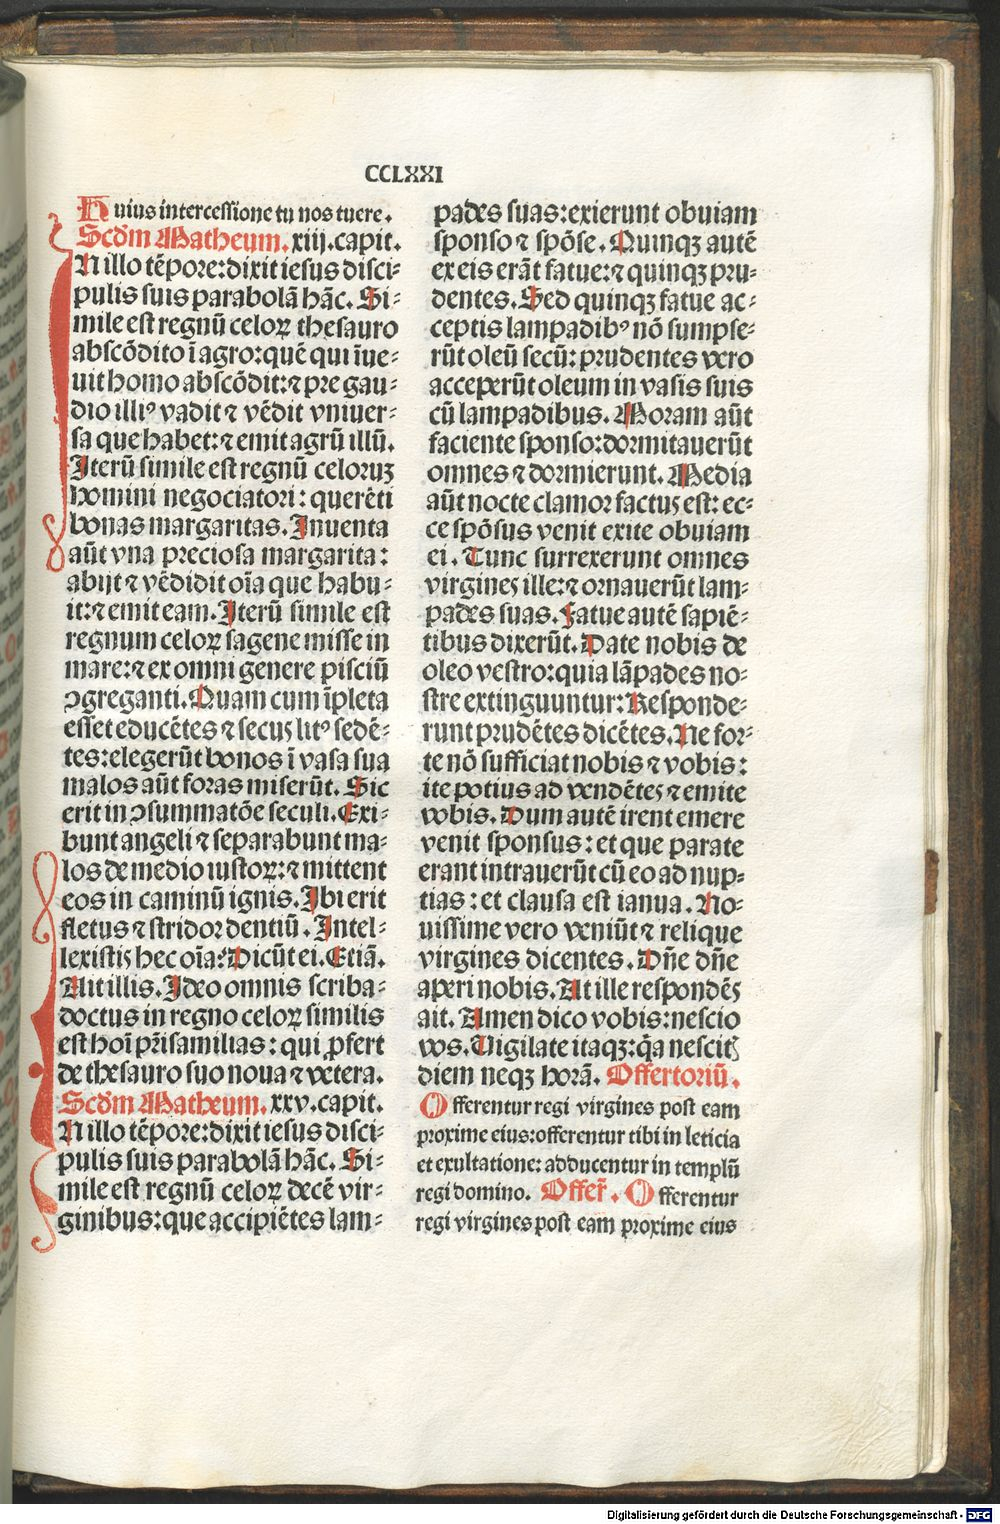 CCLXXI
Huius intercessione tu nos tuere.
Scd̄m Matheum. xiij. capit.
IN illo tēpore: dixit iesus disci-
pulis suis parabolā hāc. Si-
mile est regnū celoꝝ thesauro
abscōdito ī agro: quē qui īue-
nit homo abscōdit: ⁊ pre gau-
dio illiꝰ vadit ⁊ vēdit vniuer-
sa que habet: ⁊ emit agrū illū.
Iterū simile est regnū celoruꝫ
homini negociatori: querēti
bonas margaritas. Inuenta
aūt vna preciosa margarita:
abijt ⁊ vēdidit oīa que habu-
it: ⁊ emit eam. Iterū simile est
regnum celoꝝ sagene misse in
mare: ⁊ ex omni genere pisciū
ꝯgreganti. Quam cum īpleta
esset educētes ⁊ secuꝰ litꝰ sedē-
tes: elegerūt bonos ī vasa sua
malos aūt foras miserūt. Sic
erit in ꝯsummatōe seculi. Exi-
bunt angeli ⁊ separabunt ma-
los de medio iustoꝝ: ⁊ mittent
eos in caminū ignis. Ibi erit
fletus ⁊ stridor dentiū. Intel-
lexistis hec oīa? Dicūt ei. Etiā.
Ait illis. Ideo omnis scriba-
doctus in regno celoꝝ similis
est hoī pr̄isamilias: qui ꝓfert
de thesauro suo noua ⁊ vetera.
Scd̄m Matheum. xxv. capit.
IN illo tēpore: dixit iesus disci-
pulis suis parabolā hāc. Si-
mile est regnū celoꝝ decē vir-
ginibus: que accipiētes lam-
pades suas: exierunt obuiam
sponso ⁊ spōse. Quinqꝫ autē
ex eis erāt fatue: ⁊ quinqꝫ pru-
dentes. Sed quinqꝫ fatue ac-
ceptis lampadibꝰ nō sumpse-
rūt oleū secū: prudentes vero
acceperūt oleum in vasis suis
cū lampadibus. Moram aūt
faciente sponso: dormitauerūt
omnes ⁊ dormierunt. Media
aūt nocte clamor factus est: ec-
ce spōsus venit exite obuiam
ei. Tunc surrexerunt omnes
virgines ille: ⁊ ornauerūt lam-
pades suas. Fatue autē sapiē-
tibus dixerūt. Date nobis de
oleo vestro: quia lāpades no-
stre extinguuntur: Responde-
runt prudētes dicētes. Ne for-
te nō sufficiat nobis ⁊ vobis:
ite potius ad vendētes ⁊ emite
vobis. Dum autē irent emere
venit sponsus: et que parate
erant intrauerūt cū eo ad nup-
tias: et clausa est ianua. No-
uissime vero veniūt ⁊ relique
virgines dicentes. Dn̄e dn̄e
aperi nobis. At ille respondēs
ait. Amen dico vobis: nescio
vos. Vigilate itaqꝫ: q̄a nescitꝭ
diem neqꝫ horā. Offertoriū.
Offerentur regi virgines post eam
proxime eius: offerentur tibi in leticia
et exultatione: adducentur in templū
regi domino. Offer̄. Offerentur
regi virgines post eam proxime eius
Digitalisierung gefördert durch die Deutsche Forschungsgemeinschaft - DFG